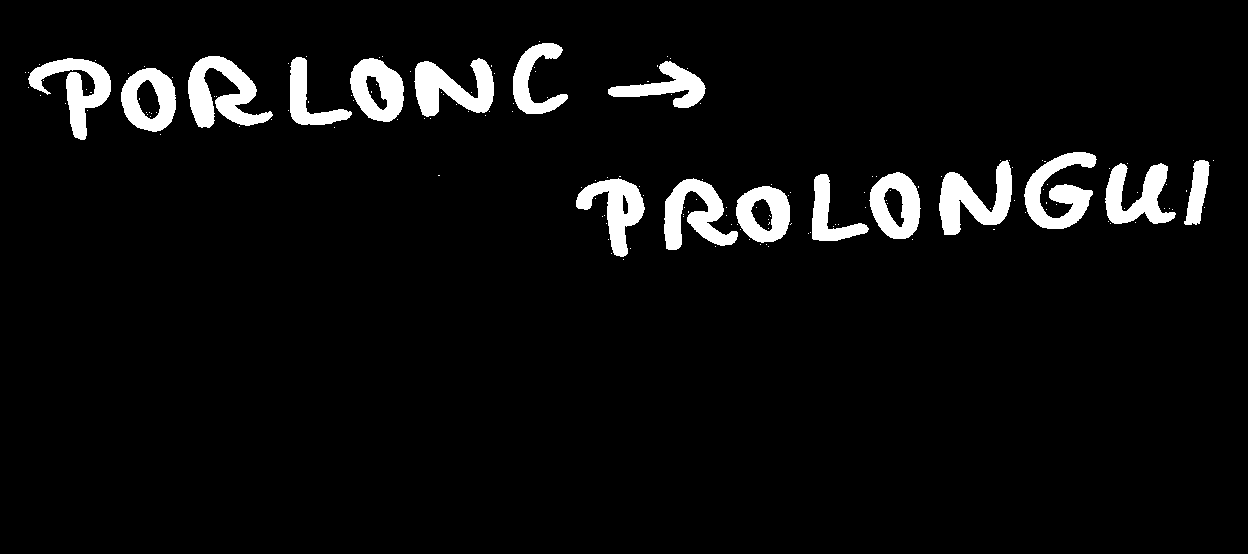 PORLONC →
PROLONGUI